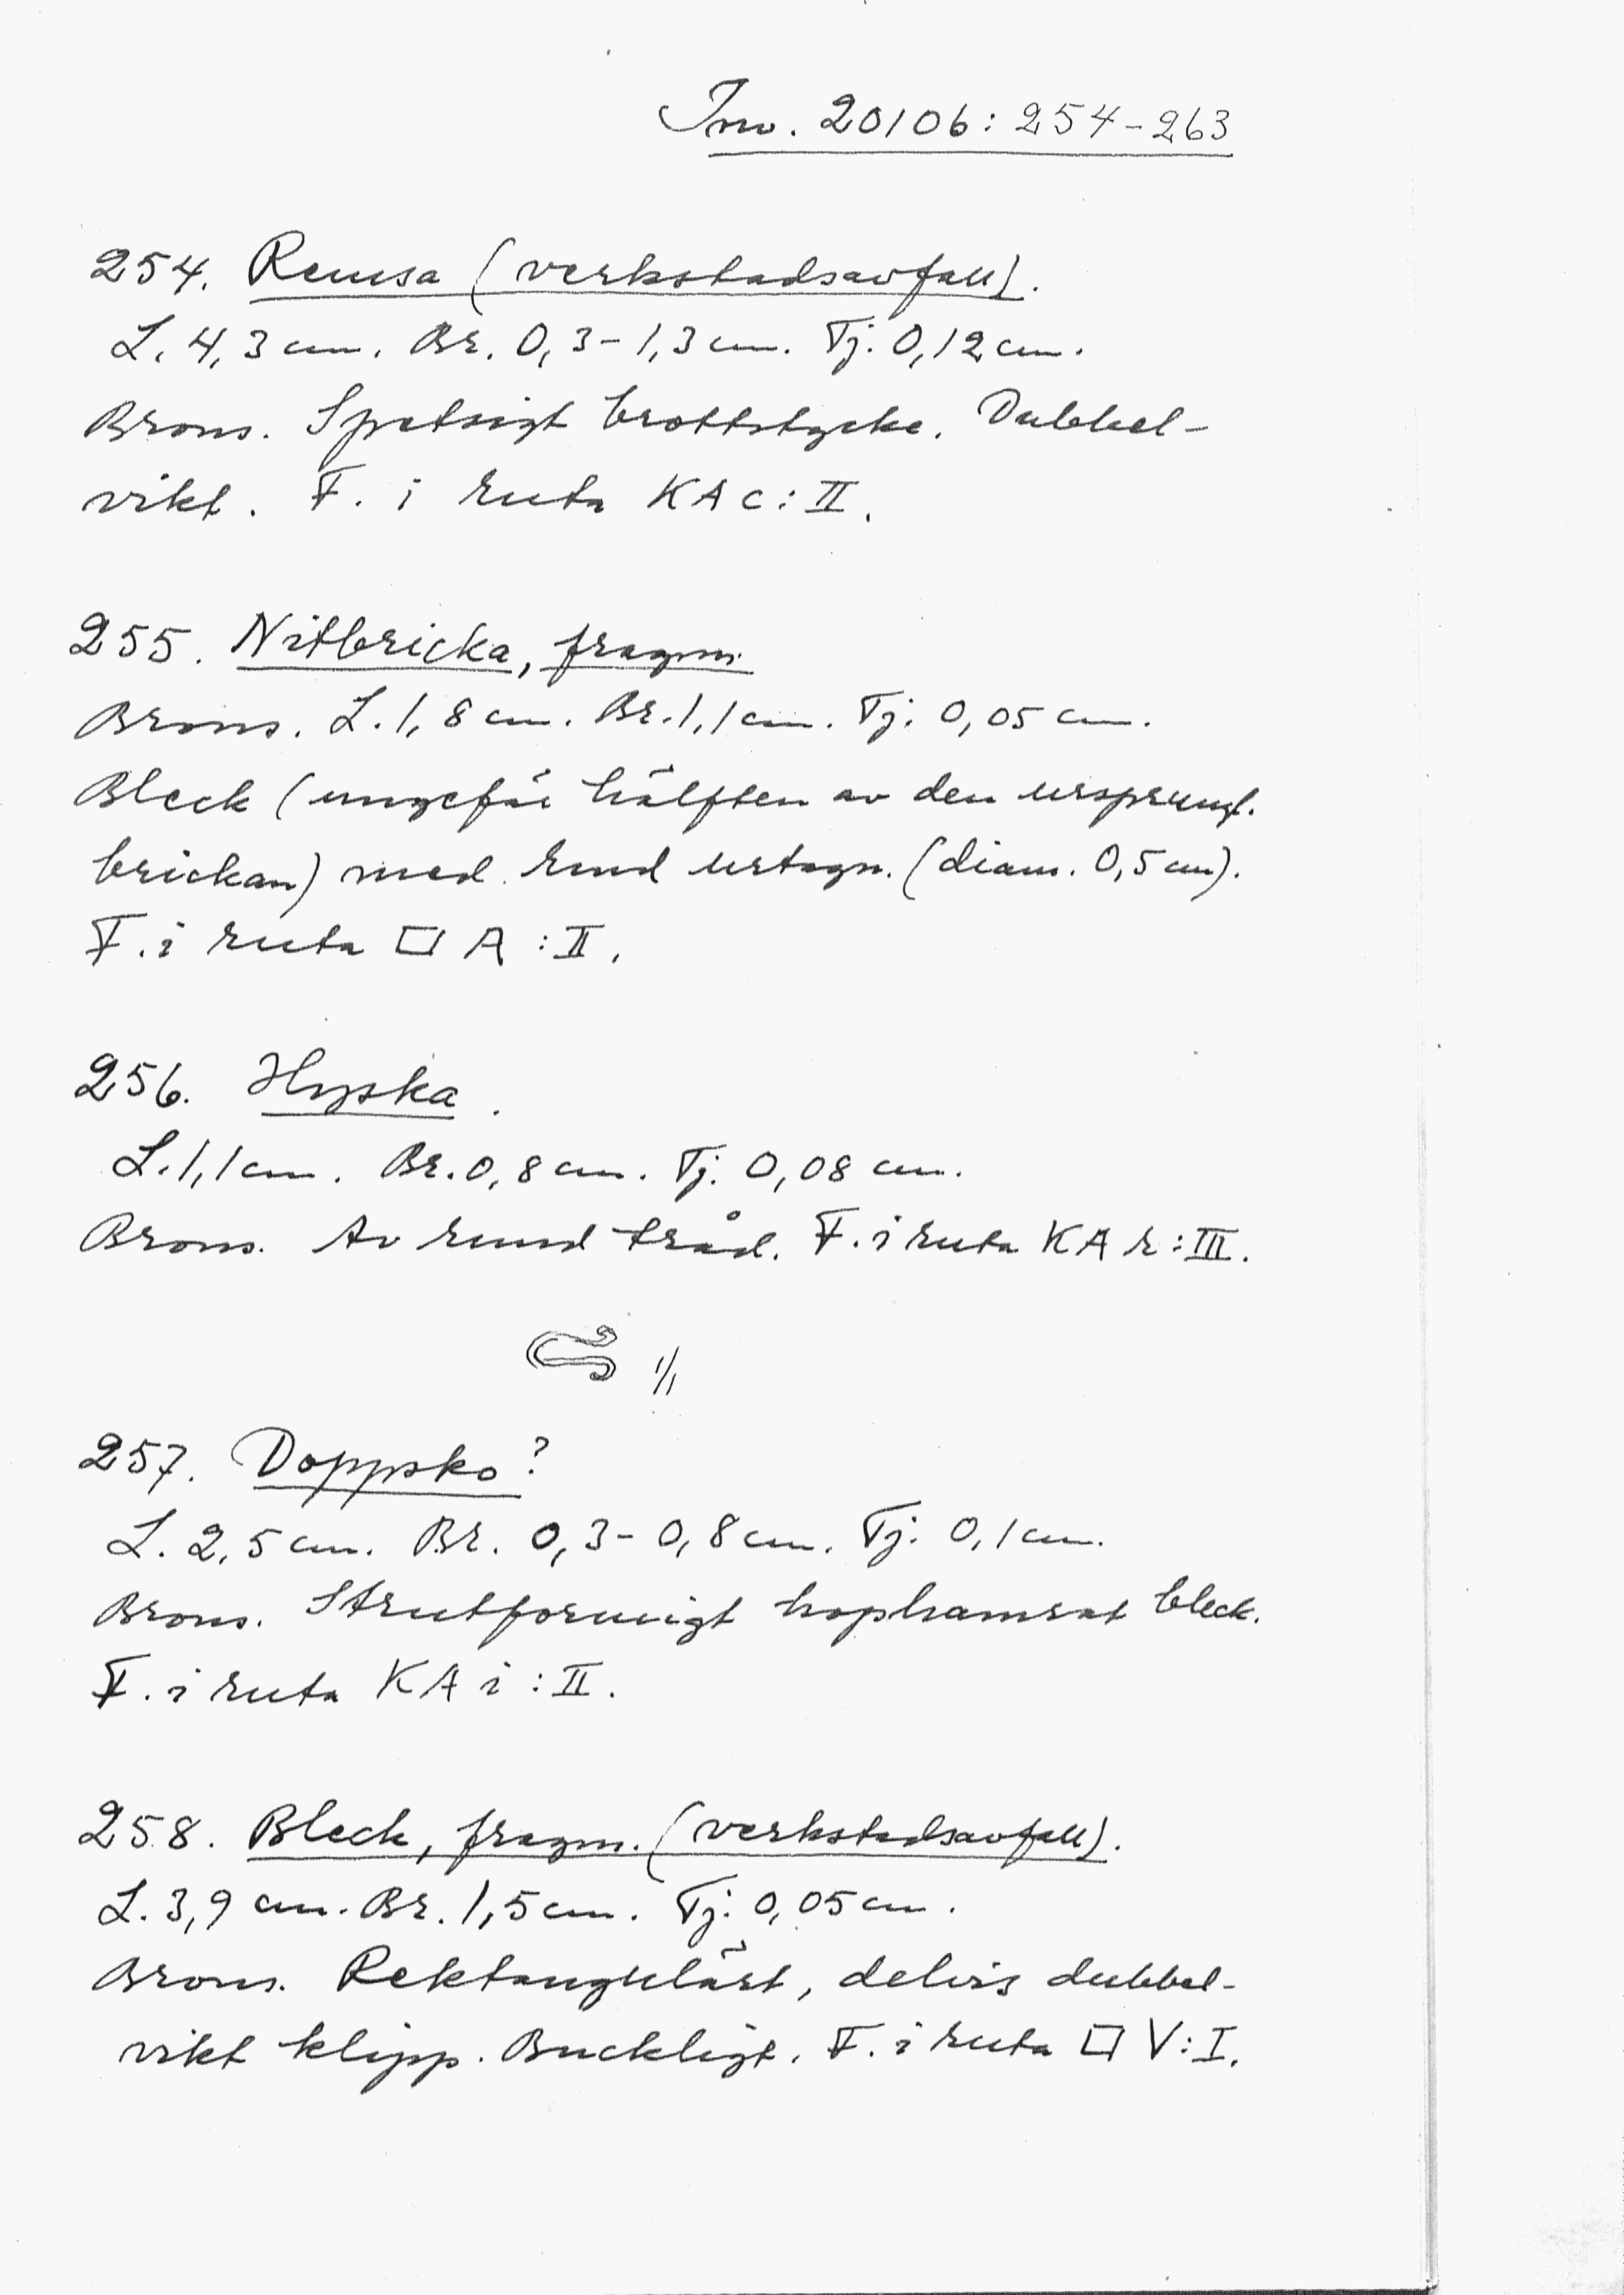 Inv. 20106: 254-263
254. Remsa (verkstadsavfall).
L. 4,3 cm. Br. 0,3-1,3 cm. Tj. 0,12 cm.
Brons. Spetsigt brottstycke. Dubbel-
vikt. F. i ruta KA c: II.
255. Nitbricka, fragm.
Brons. L. 1,8 cm. Br. 1,1 cm. Tj. 0,05 cm.
Bleck (ungefär hälften av den ursprungl.
brickan) med rund urtagn. (diam. 0,5 cm).
F. i ruta □ A: II.
256. Hyska.
L. 1,1 cm. Br. 0,8 cm. Tj. 0,08 cm.
Brons. Av rund tråd. F. i ruta KA r: III.
1/1
257. Doppsko?
L. 2,5 cm. Br. 0,3-0,8 cm. Tj. 0,1 cm.
Brons. Strutformigt hophamrat bleck.
F. i ruta KA i: II.
258. Bleck, fragm. (verkstadsavfall).
L. 3,9 cm. Br. 1,5 cm. Tj. 0,05 cm.
Brons. Rektangulärt, delvis dubbel-
vikt klipp. Buckligt. F. i ruta □ V: I.